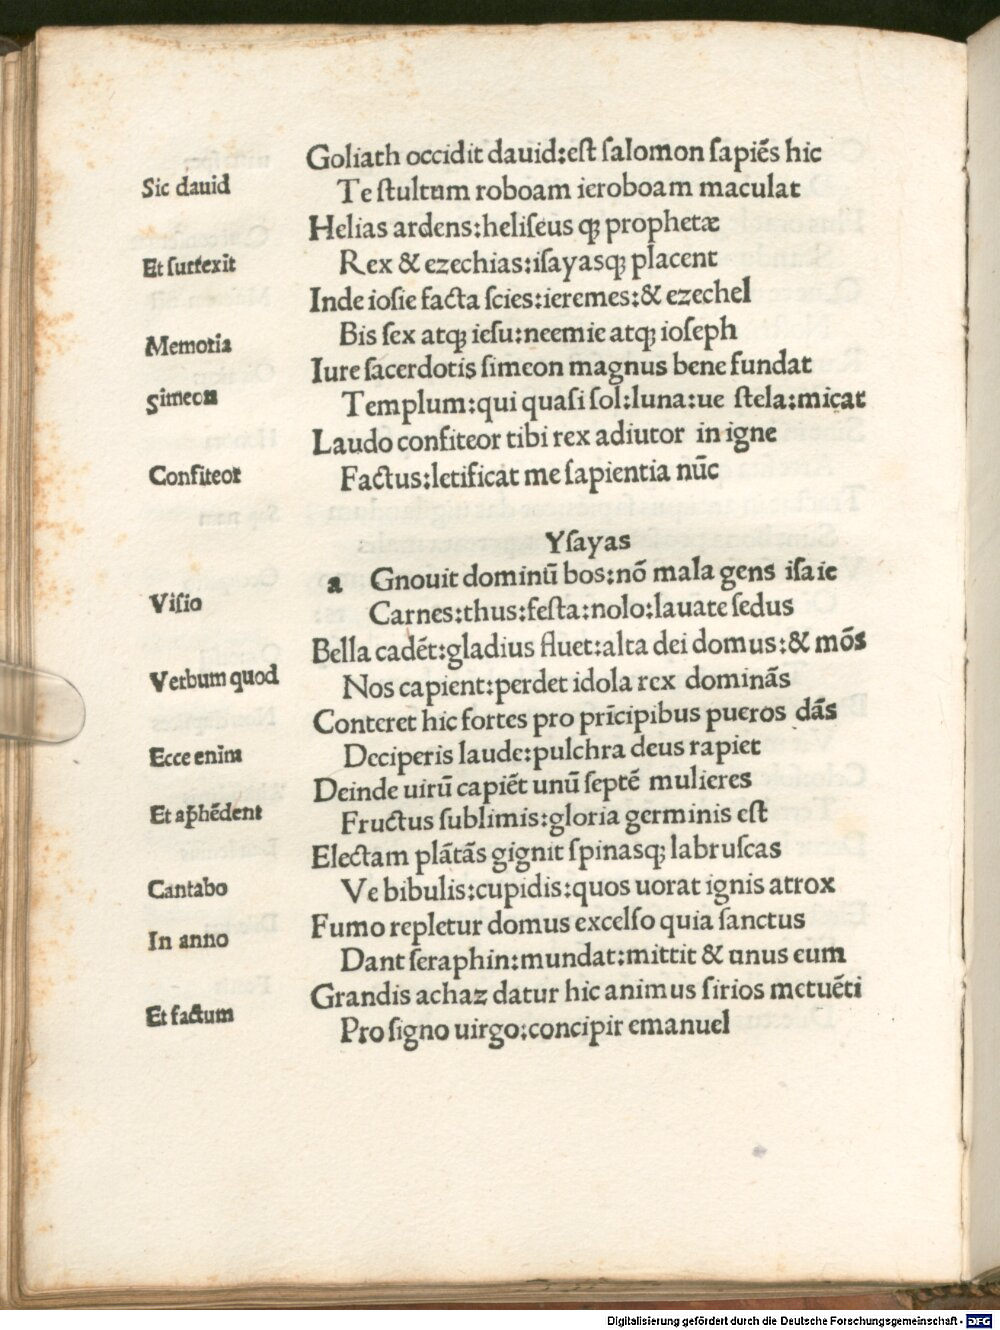 Goliath occidit dauid:est ſalomon ſapiẽs hic
Sic dauid
Te ſtultum roboam ieroboam maculat
Helias ardens:heliſeus ꝙ prophetæ
Et ſurrexit
Rex & ezechias:iſayasꝙ placent
Inde ioſie facta ſcies:ieremes:& ezechel
Memoria
Bis ſex atꝙ ieſu:neemie atꝙ ioſeph
Iure ſacerdotis ſimeon magnus bene fundat
Simeon
Templum:qui quaſi ſol:luna:ue ſtela:micat
Laudo confiteor tibi rex adiutor in igne
Confiteor
Factus:letificat me ſapientia nũc
Yſayas
a Gnouit dominũ bos:nõ mala gens iſaie
Viſio
Carnes:thus:feſta:nolo:lauate ſedus
Bella cadẽt:gladius fluet:alta dei domus:& mõs
Verbum quod
Nos capient:perdet idola rex dominãs
Conteret hic fortes pro prĩcipibus pueros dãs
Ecce enim
Deciperis laude:pulchra deus rapiet
Deinde uirũ capiẽt unũ ſeptẽ mulieres
Et aꝓhẽdent
Fructus ſublimis:gloria germinis eſt
Electam plãtãs gignit ſpinasꝙ labruſcas
Cantabo
Ve bibulis:cupidis:quos uorat ignis atrox
Fumo repletur domus excelſo quia ſanctus
In anno
Dant ſeraphin:mundat:mittit & unus eum
Grandis achaz datur hic animus ſirios metuẽti
Et factum
Pro ſigno uirgo:concipir emanuel
Digitalisierung gefördert durch die Deutsche Forschungsgemeinschaft - DFG